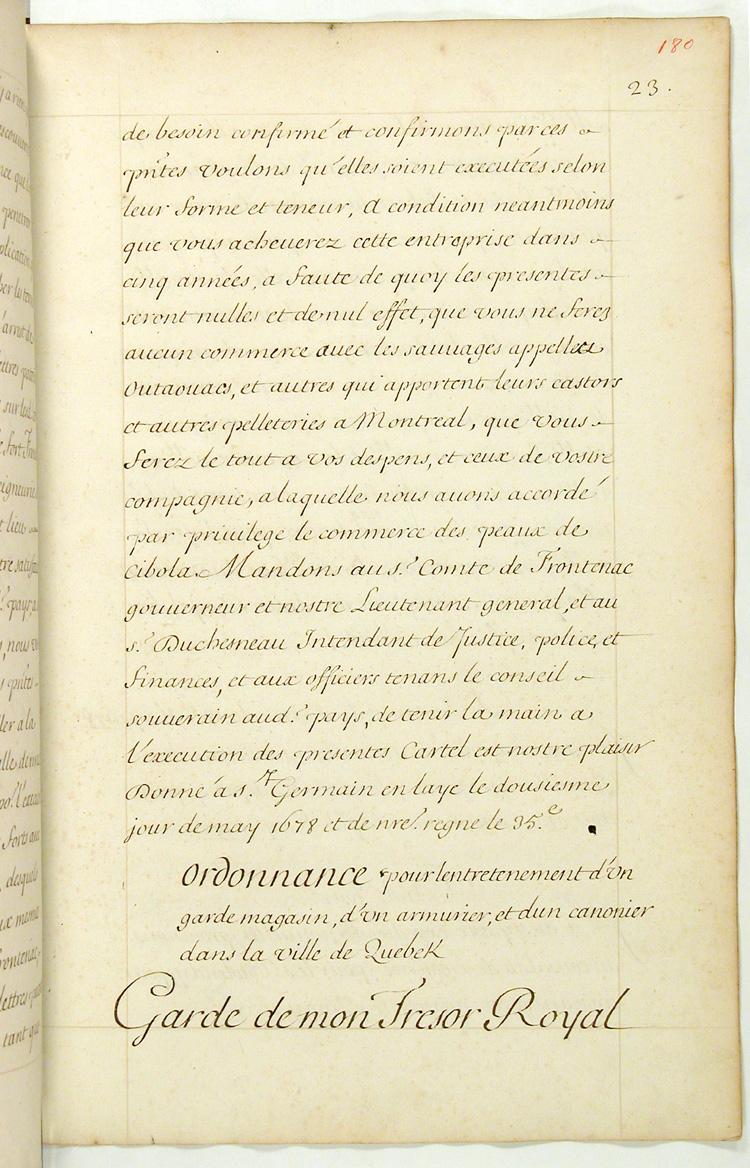 180
23.
de besoin confirmé et confirmons par ces
pñtes voulons qu'elles soient executées selon
leur forme et teneur, A condition neantmoins
que vous acheuerez cette entreprise dans
cinq années, a faute de quoy les presentes
seront nulles et de nul effet, que vous ne ferez
aucun commerce auec les sauvages appellez
Outaouacs, et autres qui apportent leurs castors
et autres pelleteries a Montreal, que vous
ferez le tout a vos despens, et ceux de vostre
compagnie, a laquelle nous auons accordé
par privilege le commerce des peaux de
Cibola. Mandons au s.r Comte de Frontenac
gouuerneur et nostre Lieutenant general, et au
s.r Duchesneau Intendant de Justice, police, et
finances, et aux officiers tenans le conseil
souuerain aud.t pays, de tenir la main a
l'execution des presentes Cartel est nostre plaisir
Donné a s.t Germain en laye le dousiesme
jour de may 1678 et de nre. regne le 35.e
Ordonnance pour lentretenement d'vn
garde magasin, d'vn armurier, et dun canonier
dans la ville de Quebek
Garde de mon Tresor Royal